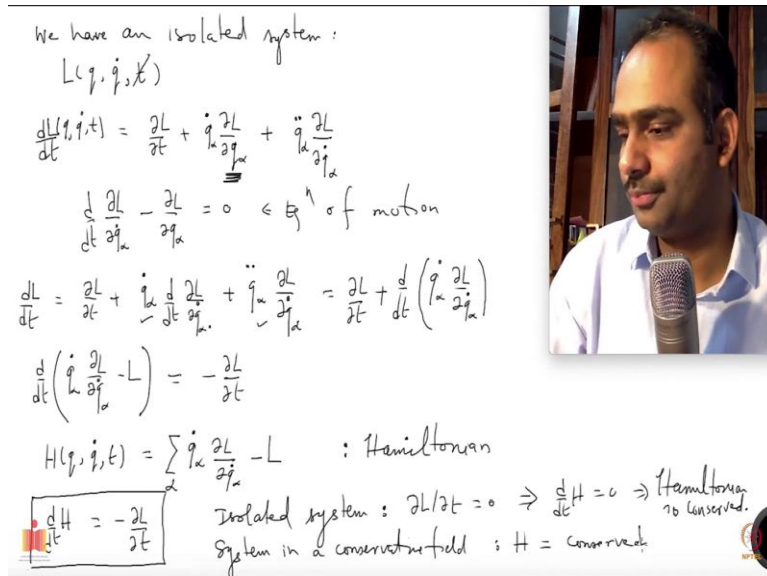 We have an isolated system:
L(q, q̇, t̸)
dL(q, q̇, t)/dt = ∂L/∂t + q̇_α ∂L/∂q_α + q̈_α ∂L/∂q̇_α
d/dt ∂L/∂q̇_α − ∂L/∂q_α = 0 ← Eqⁿ of motion
dL/dt = ∂L/∂t + q̇_α d/dt ∂L/∂q̇_α + q̈_α ∂L/∂q̇_α = ∂L/∂t + d/dt (q̇_α ∂L/∂q̇_α)
d/dt (q̇_α ∂L/∂q̇_α − L) = −∂L/∂t
H(q, q̇, t) = ∑_α q̇_α ∂L/∂q̇_α − L : Hamiltonian
d/dt H = −∂L/∂t
Isolated system : ∂L/∂t = 0 ⇒ d/dt H = 0 ⇒ Hamiltonian is conserved.
System in a conservative field : H = conserved.
NPTEL